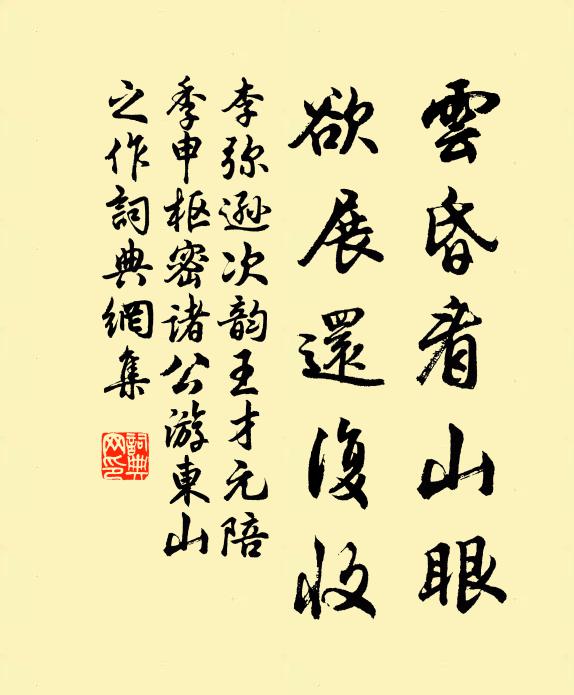 雲昏看山眼
欲展還復收
李弥遜次韵王才元陪
季申枢密诸公游東山
之作詞典網集
詞典
网印